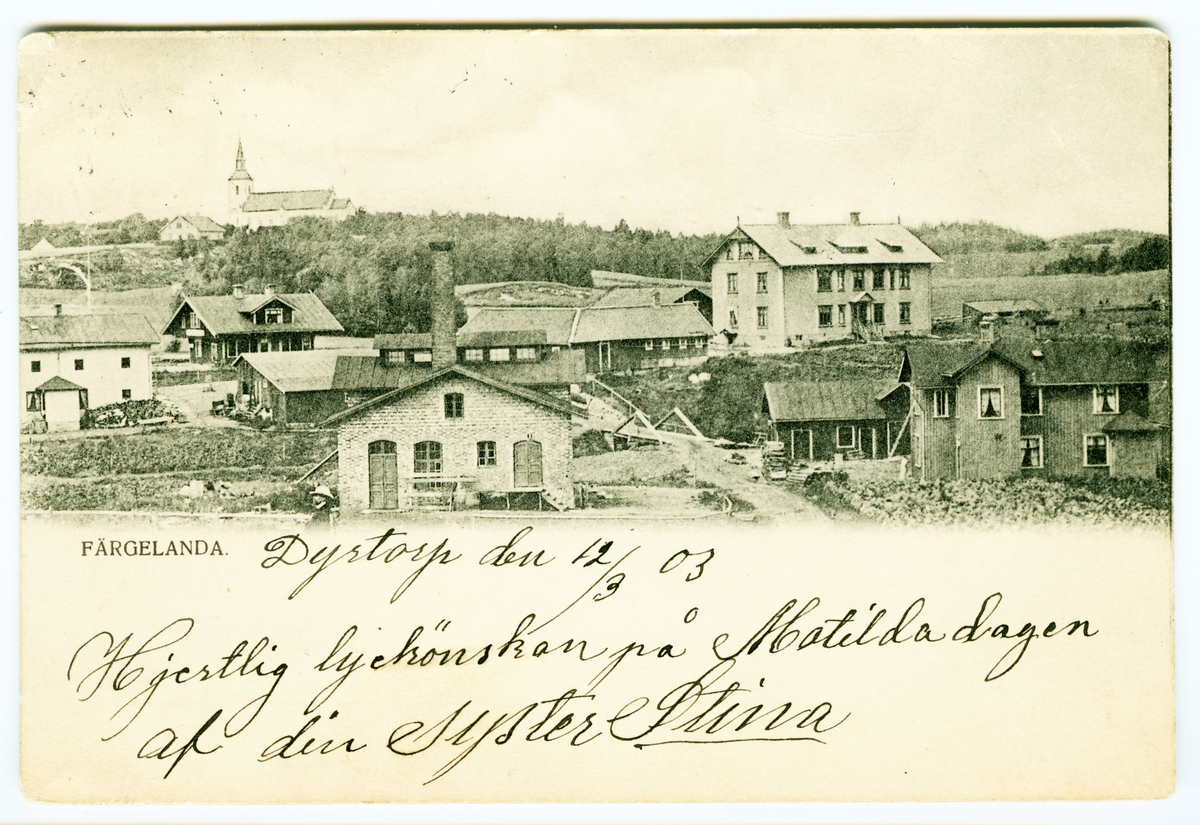 FÄRGELANDA. Dyrtorp den 12/3 03
Hjertlig lyckönskan på Matilda dagen
af din Syster Stina